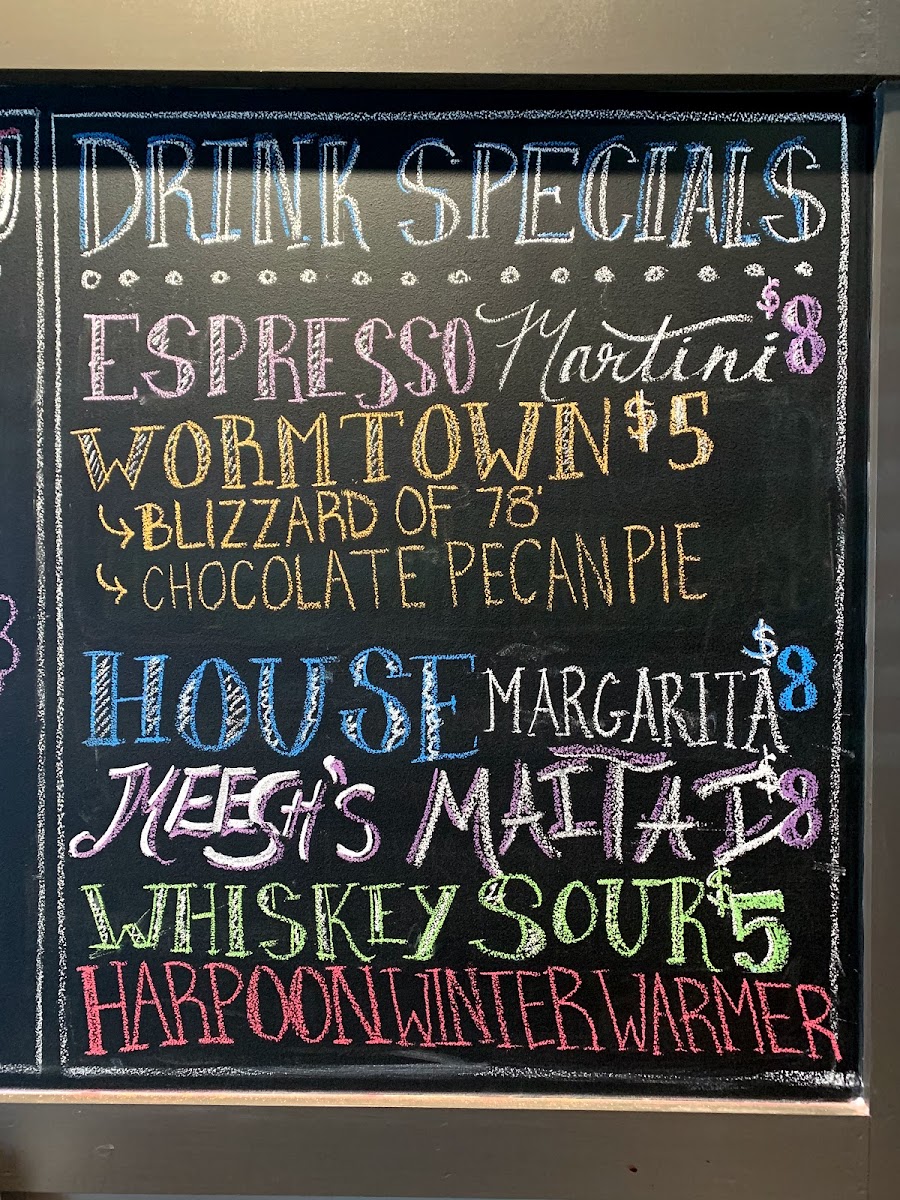 DRINK SPECIALS
ESPRESSO Martini $8
WORMTOWN $5
BLIZZARD OF 78'
CHOCOLATE PECAN PIE
HOUSE MARGARITA $8
MEECH'S MAI TAI $8
WHISKEY SOUR $5
HARPOON WINTER WARMER